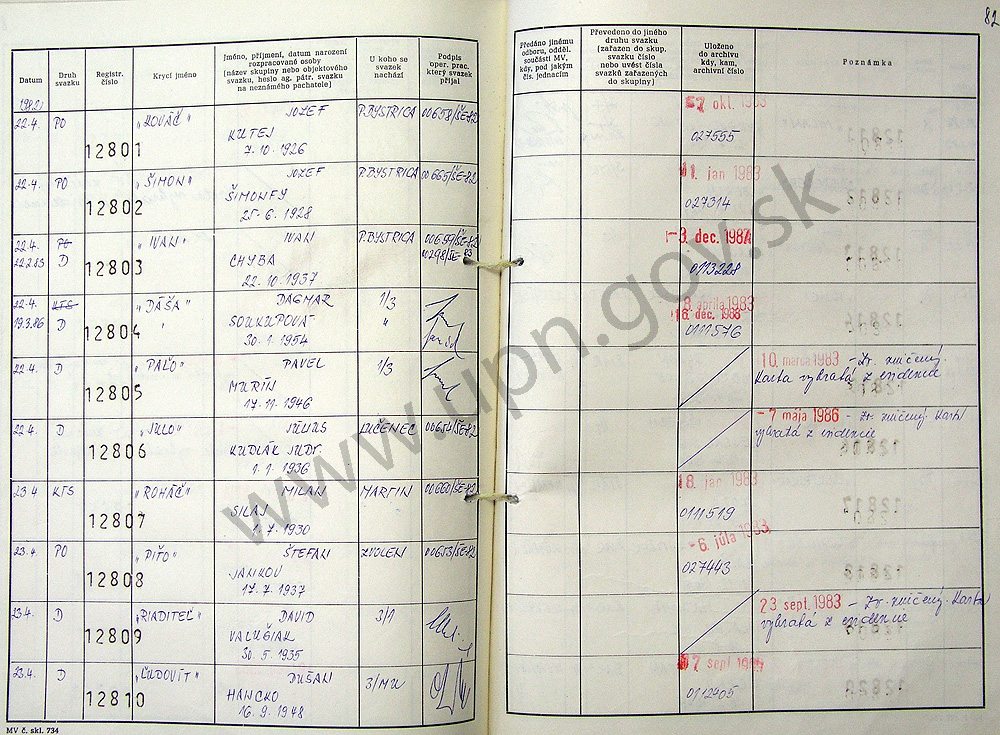 82
Datum
Druh svazku
Registr. číslo
Krycí jméno
Jméno, příjmení, datum narození
rozpracované osoby
(název skupiny nebo objektového
svazku, heslo ag. pátr. svazku
na neznámého pachatele)
U koho se
svazek
nachází
Podpis
oper. prac.
který svazek
přijal
Předáno jinému
odboru, odděl.
součásti MV,
kdy, pod jakým
čís. jednacím
Převedeno do jiného
druhu svazku
(zařazen do skup.
svazku číslo
nebo uvést čísla
svazků zařazených
do skupiny)
Uloženo
do archivu
kdy, kam,
archivní číslo
Poznámka
1982
22.4. PO 12801 „KOVÁČ" JOZEF P.BYSTRICA 00658/ŠE-82
KUTEJ
7. 10. 1926
okt. 1983
027555
22.4. PO 12802 „ŠIMON" JOZEF P.BYSTRICA 00665/ŠE-82
ŠIMONFY
25. 6. 1928
11. jan 1983
027314
22.4. PO 12803 „IVAN" IVAN P.BYSTRICA 00659/ŠE-82
22.2.83 D CHYBA
22. 10. 1937
-3. dec. 1987
0113228
22.4. KTS 12804 „DÁŠA" DAGMAR 1/3
19.3.86 D " SOUKUPOVÁ "
30. 1. 1954
8. apríla 1983
16. dec. 1988
0111576
22.4. D 12805 „PAĽO" PAVEL 1/3
MURÍN
17. 11. 1946
10. marca 1983 - Zv. zničený.
Karta vybratá z evidencie
22.4. D 12806 „JULO" JÚLIUS LUČENEC 00654/ŠE-82
KUDLÁK JUDr.
1. 1. 1936
- 7 mája 1986 - Zv. zničený. Karta
vybratá z evidencie
23.4 KTS 12807 „ROHÁČ" MILAN MARTIN 00660/ŠE-82
SILAJ
1. 7. 1930
18. jan 1983
0111519
23.4. PO 12808 „PIŤO" ŠTEFAN ZVOLEN 00653/ŠE-82
JANKOV
17. 7. 1937
- 6. júla 1983
027443
23.4. D 12809 „RIADITEĽ" DAVID 3/1
VALUŠIAK
30. 5. 1935
23 sept. 1983 - Zv. zničený. Karta
vybratá z evidencie
23.4. D 12810 „ĽUDOVÍT" DUŠAN 3/MU
HANCKO
16. 9. 1948
0112405
MV č. skl. 734
www.upn.gov.sk